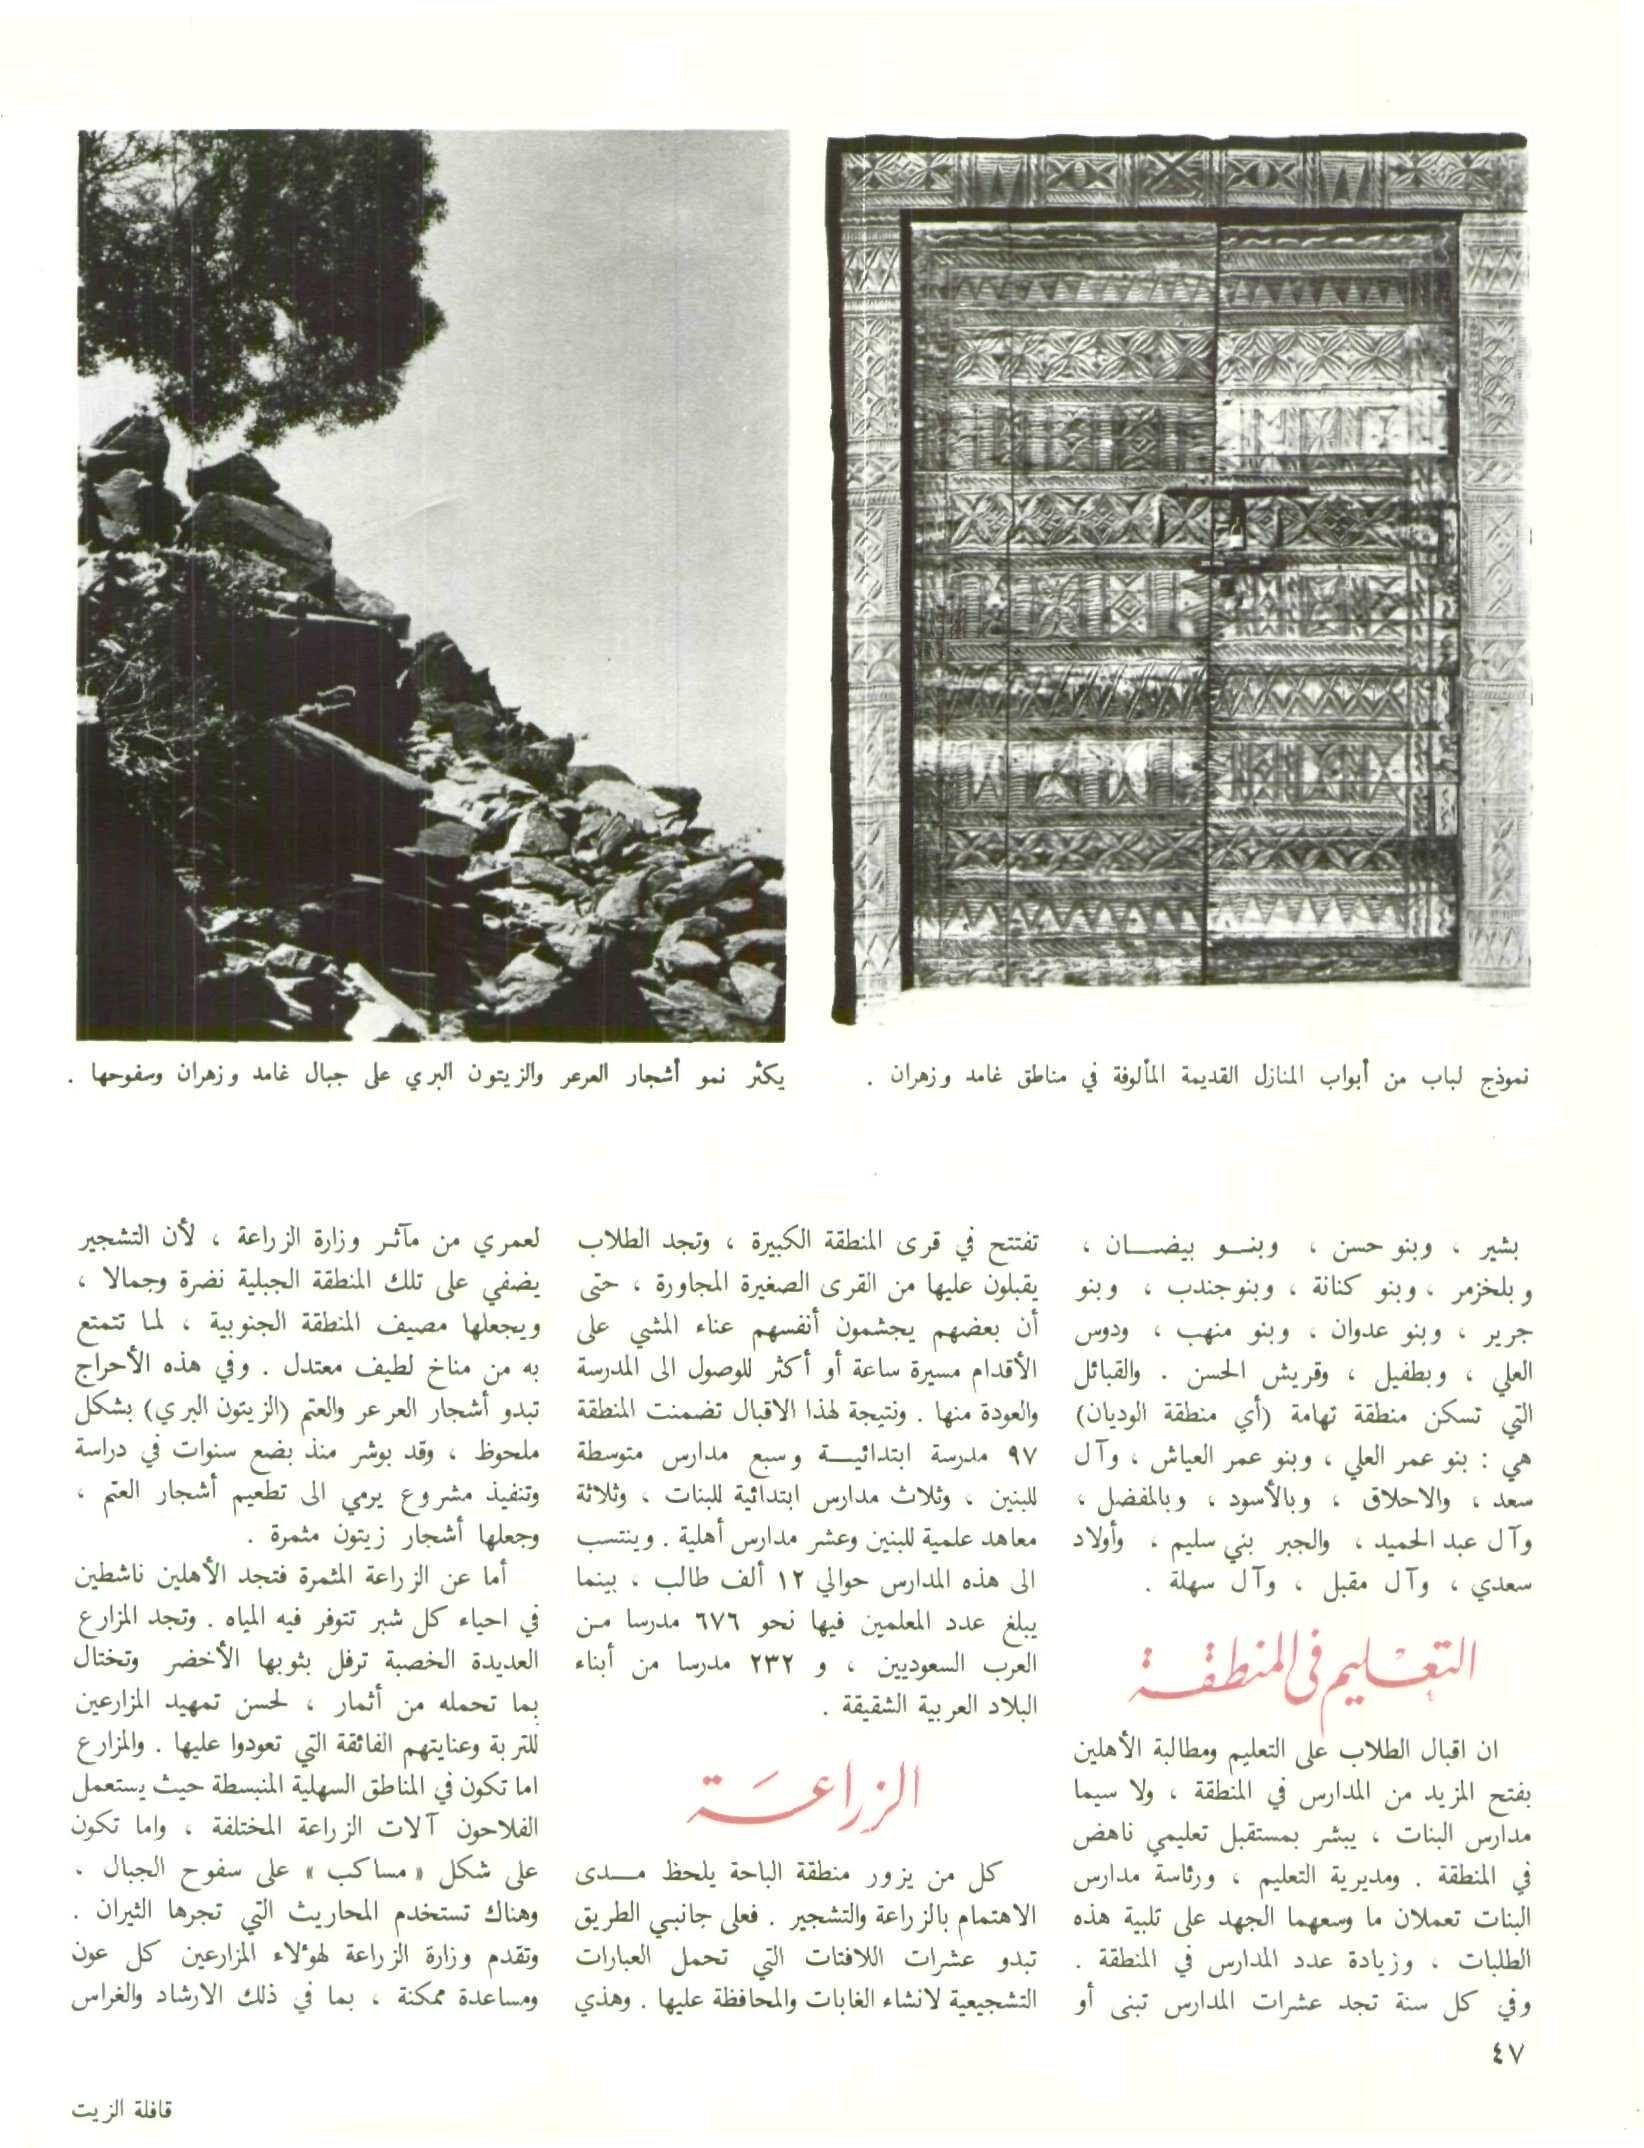 نموذج لباب من أبواب المنازل القديمة المألوفة في مناطق غامد وزهران .
يكثر نمو أشجار العرعر والزيتون البري على جبال غامد وزهران وسفوحها .
بشير ، وبنو حسن ، وبنـــو بيضـــان ،
وبلخزمر ، وبنو كنانة ، وبنو جندب ، وبنو
جرير ، وبنو عدوان ، وبنو منهب ، ودوس
العلي ، وبطفيل ، وقريش الحسن . والقبائل
التي تسكن منطقة تهامة (أي منطقة الوديان)
هي : بنو عمر العلي ، وبنو عمر العياش ، وآل
سعد ، والاحلاق ، وبالأسود ، وبالمفضل ،
وآل عبد الحميد ، والجبر بني سليم ، وأولاد
سعدي ، وآل مقبل ، وآل سهلة .
التعليم في المنطقة
ان اقبال الطلاب على التعليم ومطالبة الأهلين
بفتح المزيد من المدارس في المنطقة ، ولا سيما
مدارس البنات ، يبشر بمستقبل تعليمي ناهض
في المنطقة . ومديرية التعليم ، ورئاسة مدارس
البنات تعملان ما وسعهما الجهد على تلبية هذه
الطلبات ، وزيادة عدد المدارس في المنطقة .
وفي كل سنة تجد عشرات المدارس تبنى أو
تفتتح في قرى المنطقة الكبيرة ، وتجد الطلاب
يقبلون عليها من القرى الصغيرة المجاورة ، حتى
أن بعضهم يجشمون أنفسهم عناء المشي على
الأقدام مسيرة ساعة أو أكثر للوصول الى المدرسة
والعودة منها . ونتيجة لهذا الاقبال تضمنت المنطقة
٩٧ مدرسة ابتدائيـــة وسبع مدارس متوسطة
للبنين ، وثلاث مدارس ابتدائية للبنات ، وثلاثة
معاهد علمية للبنين وعشر مدارس أهلية . وينتسب
الى هذه المدارس حوالي ١٢ ألف طالب ، بينما
يبلغ عدد المعلمين فيها نحو ٦٧٦ مدرسا مـن
العرب السعوديين ، و ٢٣٢ مدرسا من أبناء
البلاد العربية الشقيقة .
الزراعة
كل من يزور منطقة الباحة يلحظ مـــدى
الاهتمام بالزراعة والتشجير . فعلى جانبي الطريق
تبدو عشرات اللافتات التي تحمل العبارات
التشجيعية لانشاء الغابات والمحافظة عليها . وهذي
لعمري من مآثـر وزارة الزراعة ، لأن التشجير
يضفي على تلك المنطقة الجبلية نضرة وجمالا ،
ويجعلها مصيف المنطقة الجنوبية ، لمـا تتمتع
به من مناخ لطيف معتدل . وفي هذه الأحراج
تبدو أشجار العرعر والعتم (الزيتون البري) بشكل
ملحوظ ، وقد بوشر منذ بضع سنوات في دراسة
وتنفيذ مشروع يرمي الى تطعيم أشجار العتم ،
وجعلها أشجار زيتون مثمرة .
أما عن الزراعة المثمرة فتجد الأهلين ناشطين
في احياء كل شبر تتوفر فيه المياه . وتجد المزارع
العديدة الخصبة ترفل بثوبها الأخضر وتختال
بما تحمله من أثمار ، لحسن تمهيد المزارعين
للتربة وعنايتهم الفائقة التي تعودوا عليها . والمزارع
اما تكون في المناطق السهلية المنبسطة حيث يستعمل
الفلاحون آلات الزراعة المختلفة ، واما تكون
على شكل « مساكب » على سفوح الجبال .
وهناك تستخدم المحاريث التي تجرها الثيران .
وتقدم وزارة الزراعة لهؤلاء المزارعين كل عون
ومساعدة ممكنة ، بما في ذلك الارشاد والغراس
٤٧
قافلة الزيت